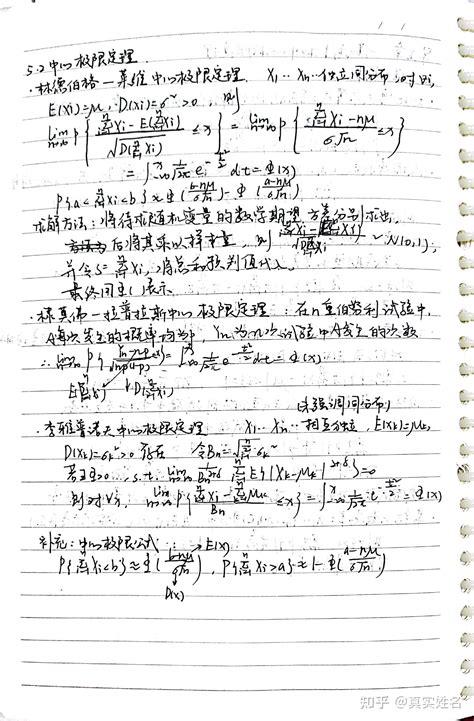 5.2 中心极限定理
·林德伯格—莱维中心极限定理. X₁…Xₙ 独立同分布, 对∀i,
E(Xi)=μ, D(Xi)=σ²>0, 则
lim n→∞ P{ (Σ Xi - E(Σ Xi)) / √D(Σ Xi) ≤x } = lim n→∞ P{ (Σ Xi - nμ) / σ√n ≤x }
= ∫-∞^x 1/√2π e^(-t²/2) dt = Φ(x)
P{a<Σ Xi<b} ≈ Φ((b-nμ)/σ√n) - Φ((a-nμ)/σ√n)
求解方法: 将待求随机变量的数学期望、方差分别求出,
后将其乘以样本量, 则 ~N(0,1),
并令S=Σ Xi, 将总和
最终用Φ()表示.
·棣莫佛—拉普拉斯中心极限定理: 在n重伯努利试验中,
A每次发生的概率均为p, Yn为n次试验中A发生的次数
∴ lim n→∞ P{ (Yn-np) / √np(1-p) ≤x } = ∫-∞^x 1/√2π e^(-t²/2) dt = Φ(x)
E(Σ Xi) D(Σ Xi)
(未强调同分布)
·李雅普诺夫中心极限定理 X₁…Xn…相互独立, E(Xk)=μk,
D(Xk)=σk²>0 存在 令Bn=√Σ σk²
若∃δ>0, s.t. lim n→∞ 1/Bn^(2+δ) Σ E{|Xk-μk|^(2+δ)}=0
则对∀x, lim n→∞ P{ (Σ Xi - Σ μk) / Bn ≤x } = ∫-∞^x 1/√2π e^(-t²/2) = Φ(x)
补充: 中心极限公式 →E(X)
P{Σ Xi<b} ≈ Φ((b-nμ)/σ√n), P{Σ Xi>a} ≈ 1-Φ((a-nμ)/σ√n)
D(X)
知乎 @真实姓名